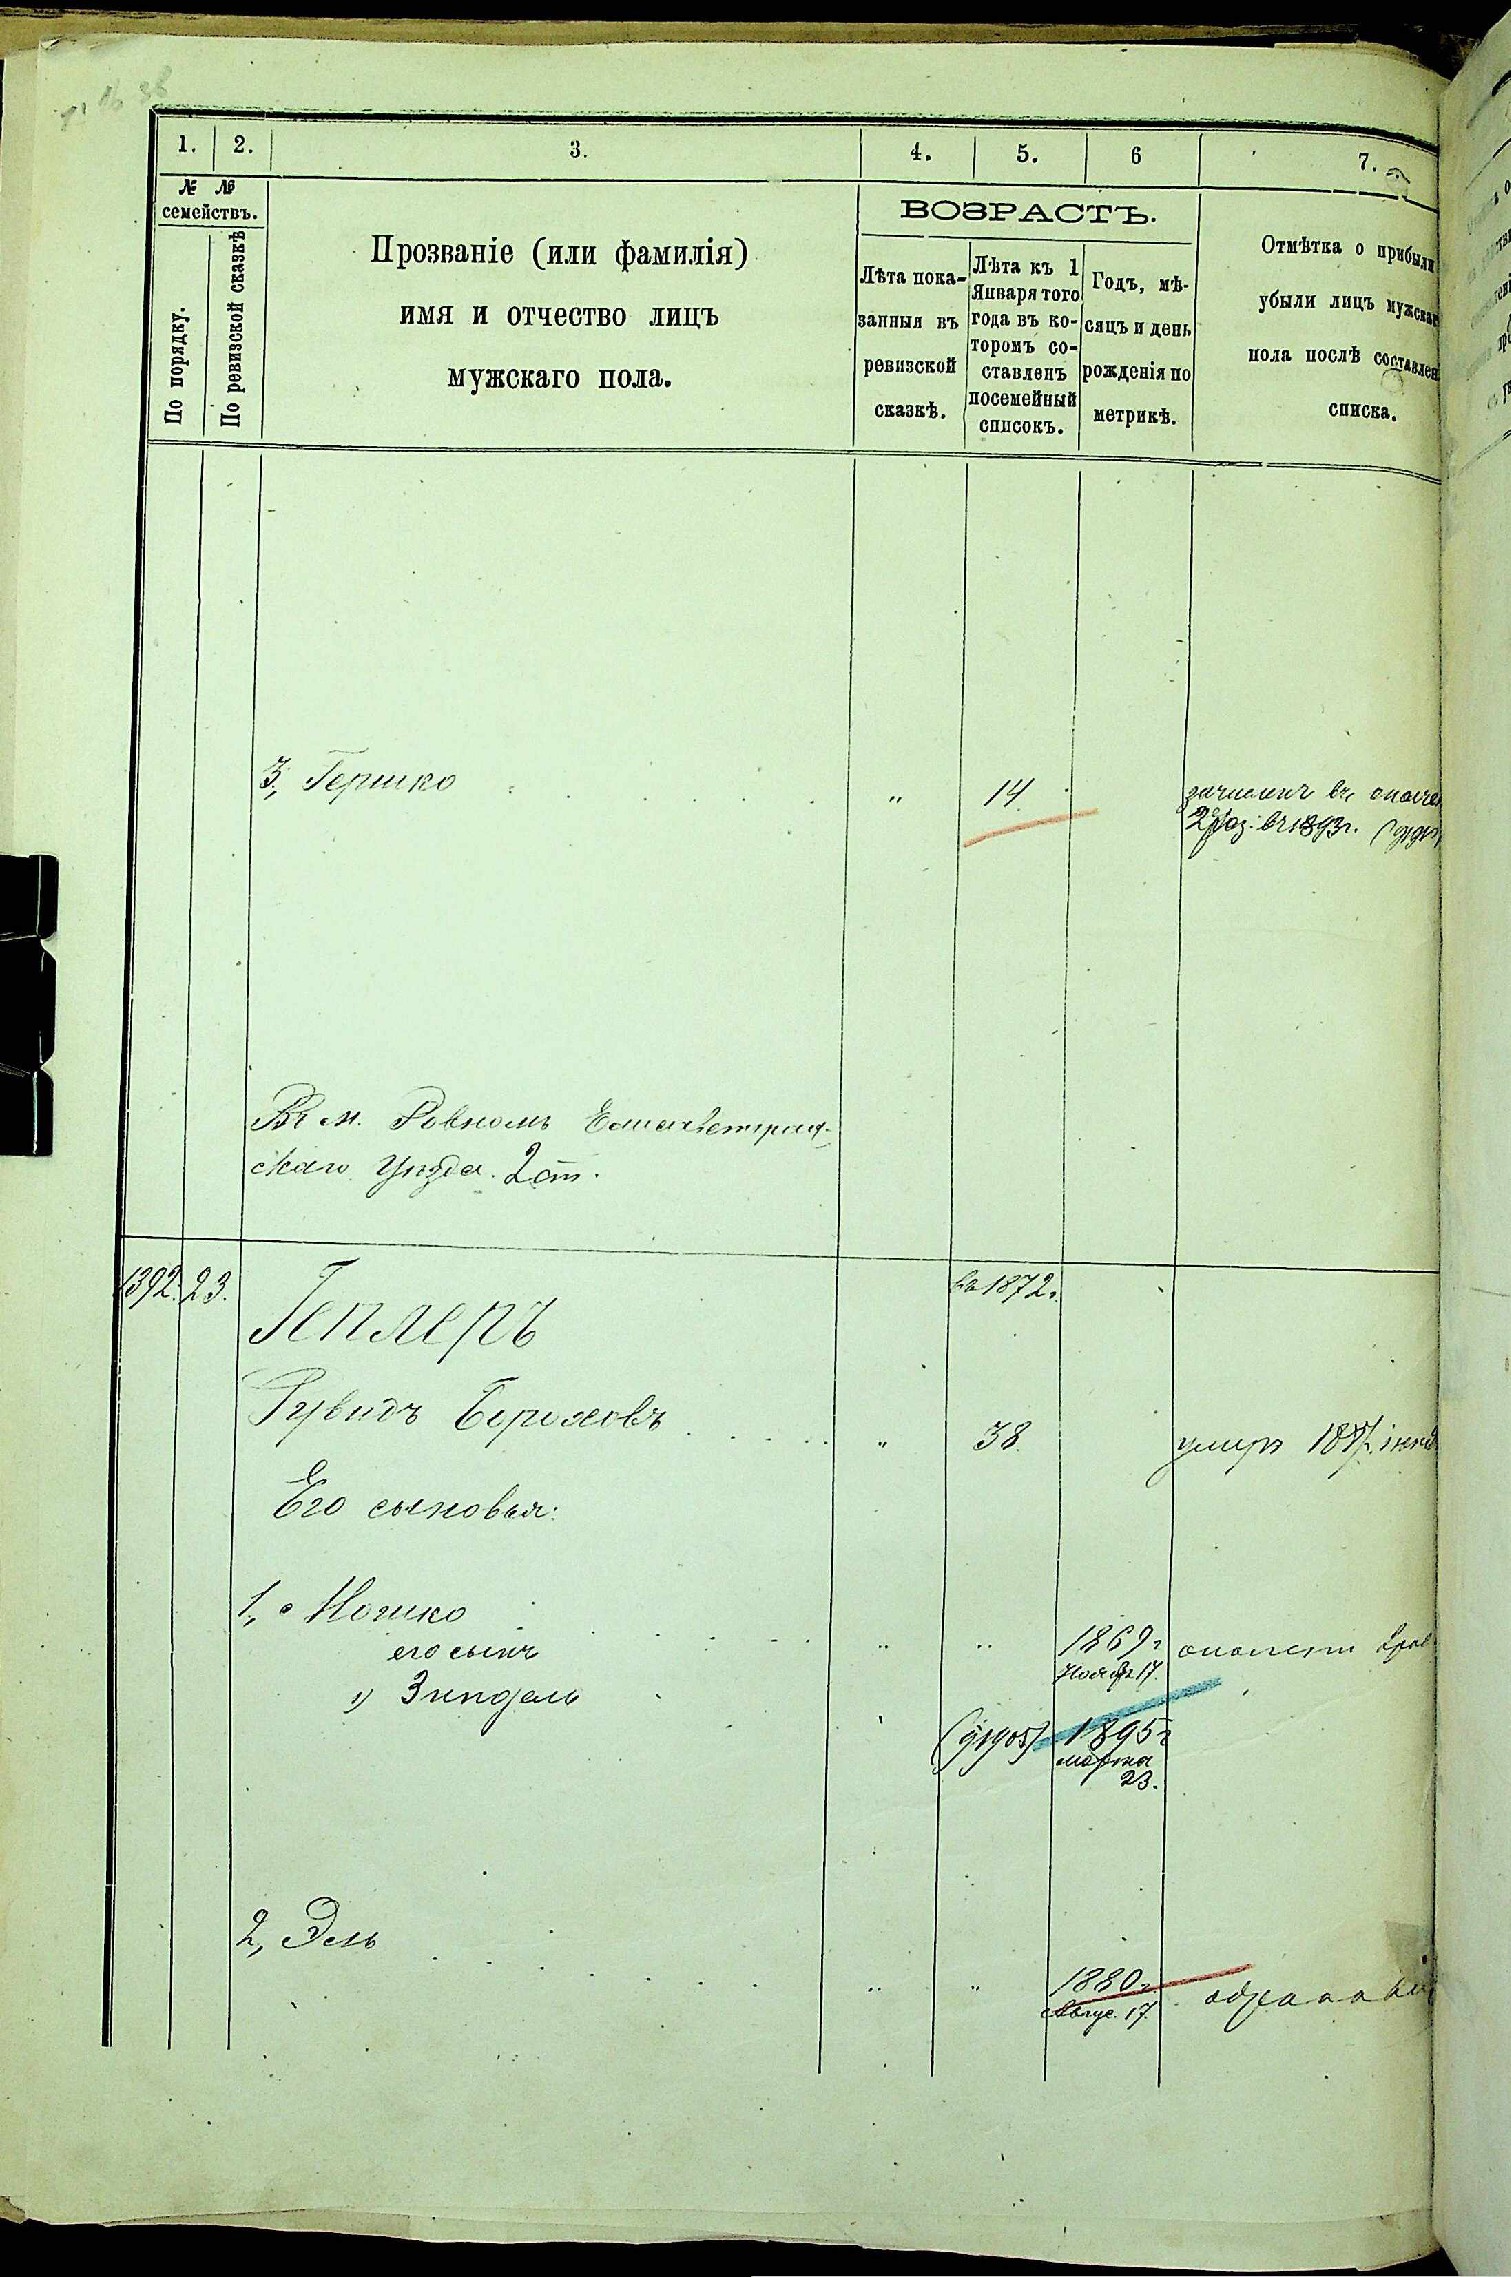 1. 2. 3. 4. 5. 6 7.
№ №
семействъ.
По порядку.
По ревизской сказкѣ
Прозваніе (или фамилія)
имя и отчество лицъ
мужскаго пола.
ВОЗРАСТЪ.
Лѣта пока-
занныя въ
ревизской
сказкѣ.
Лѣта къ 1
Января того
года въ ко-
торомъ со-
ставленъ
посемейный
списокъ.
Годъ, мѣ-
сяцъ и день
рожденія по
метрикѣ.
Отмѣтка о прибыли
убыли лицъ мужска
пола послѣ составлен
списка.
3, Гершко " 14 зачисленъ въ ополче
2 раз. въ 1893 г.
Въ м. Ровномъ Елисаветград-
скаго уѣзда. 2 ст.
1392. 23. въ 1872 г.
Геплеръ
Рувимъ Бороховъ " 38. умеръ
Его сыновья:
1, Мошко " " 1869 г
его сынъ Ноября 17.
1) Зиндель
1895 г
марта
23.
2, Эль " " 1880 г
Авгус. 17.